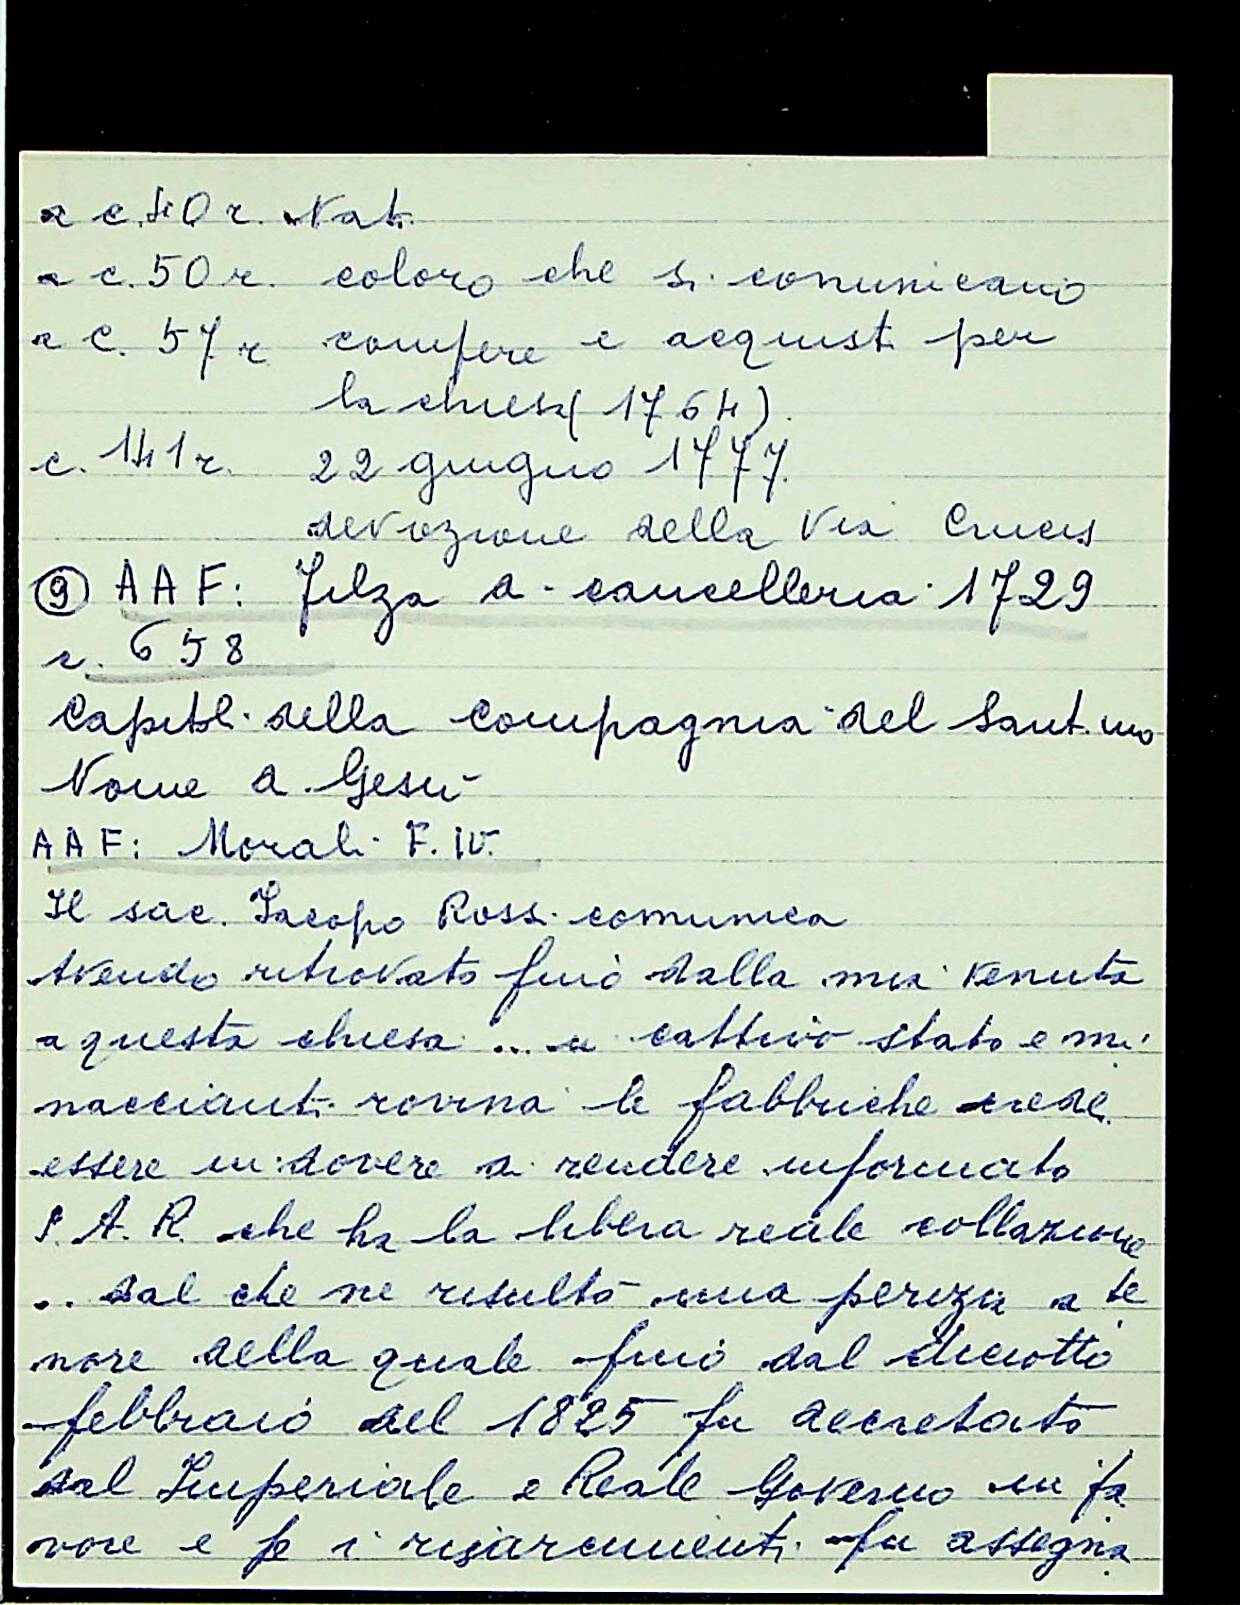 a c.40 r. Nati
a c.50 r. coloro che si comunicano
a c. 57 r compere e acquisti per
la chiesa (1764)
c. 141 r. 22 giugno 1777
devozione della Via Crucis
⑨ AAF: Filza di cancelleria 1729
c. 658
Capitoli della compagnia del Sant.mo
Nome di Gesù
AAF: Morali F. IV.
Il sac. Jacopo Rossi comunica
Avendo ritrovato fino dalla mia venuta
a questa chiesa ... in cattivo stato e mi
naccianti rovina le fabbriche crede
essere in dovere di rendere informato
S. A. R. che ha la libera reale collazione
.. dal che ne risultò una perizia a te
nore della quale fino dal diciotto
febbraio del 1825 fu decretato
dal Imperiale e Reale Governo in fa
vore e pe i risarcimenti fu assegna